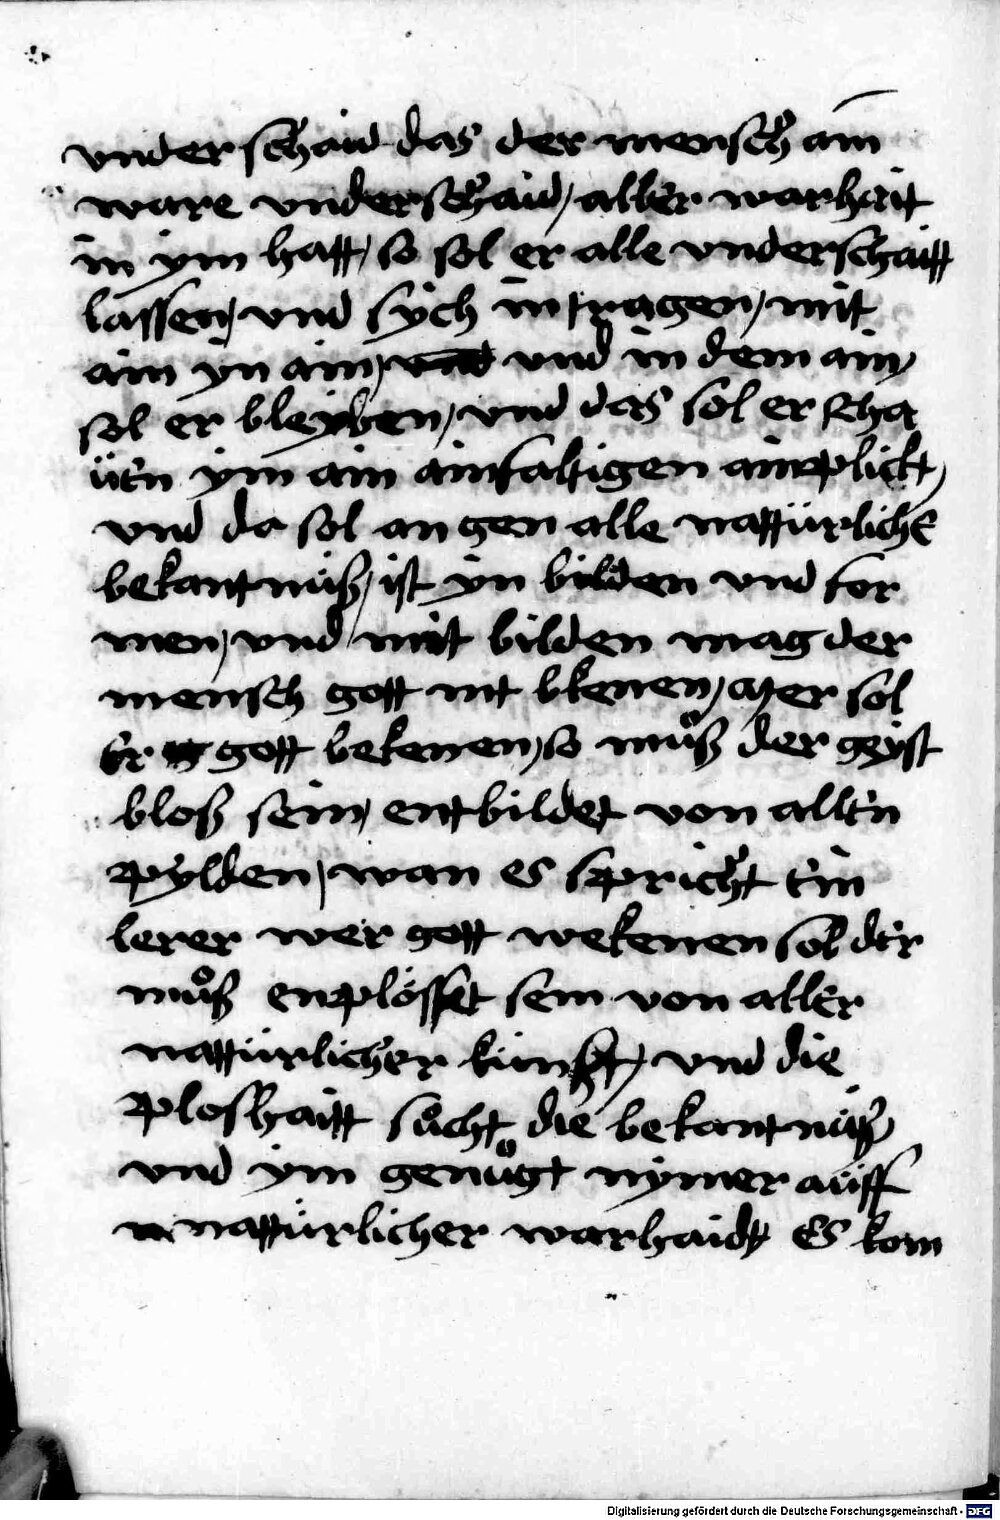 vnder schaid das der mensch ain
ware vnderschaid, aller warhait
in ym hatt, so sol er alle vnderschaitt
lassen, vnd sych in tragen, mit
ain yn ain, vnd vnd in dem ain,
sol er bleyben, vnd das sol er scha
üen ym ain ainfaltigen ainplickt,
vnd da sol an gen alle nattürliche
bekantnüß, ist yn bilden vnd for
men, vnd mit bilden mag der
mensch gott nit bkenen, aber sol
Er gott bekenen, so muͦß der geyst
bloß sein, entbildet von allen
pylden, wan es spricht ein
lerer wer gott wekenen sol der
muͦß enplösset sein von aller
nattürlicher künst, vnd die
ploshaitt suͦcht die bekantnüß,
vnd ym genuͦgt nymer aüff
nattürlicher warhaidt Es kom
Digitalisierung gefördert durch die Deutsche Forschungsgemeinschaft - DFG